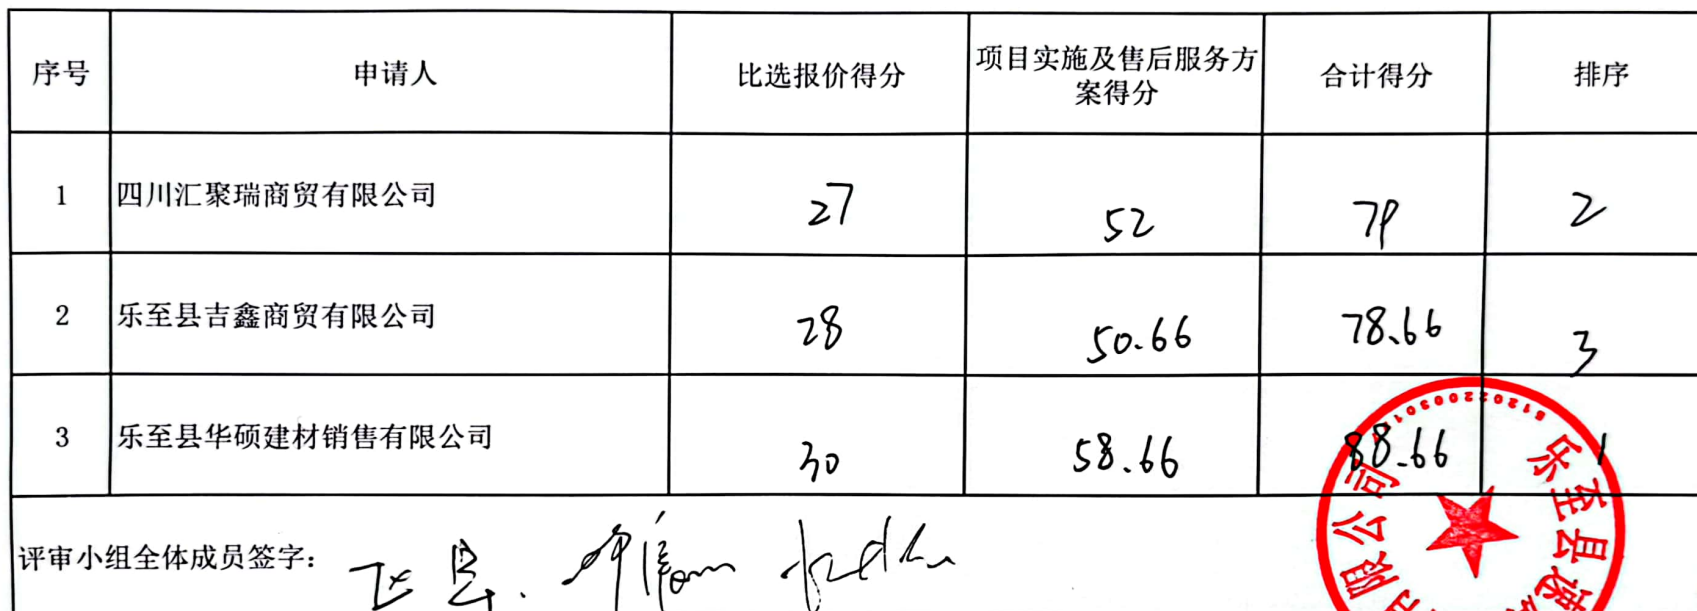 序号 申请人 比选报价得分 项目实施及售后服务方案得分 合计得分 排序
1 四川汇聚瑞商贸有限公司 27 52 79 2
2 乐至县吉鑫商贸有限公司 28 50.66 78.66 3
3 乐至县华硕建材销售有限公司 30 58.66 88.66 1
评审小组全体成员签字：
乐至县
限公司